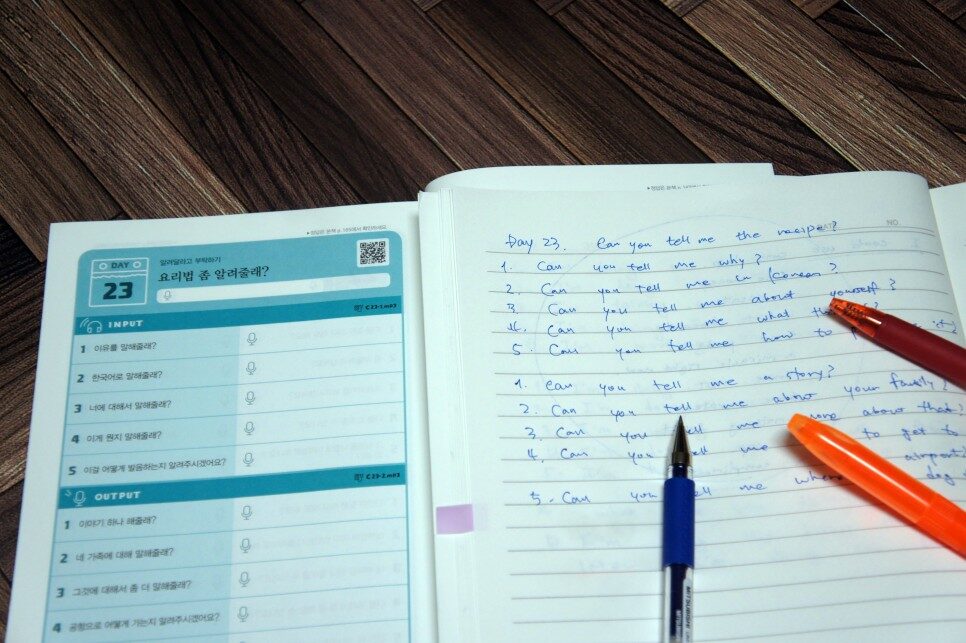 ▶정답은 본책 p. 165에서 확인하세요
DAY
23
알려달라고 부탁하기
요리법 좀 알려줄래?
C 23-1.mp3
INPUT
1 이유를 말해줄래?
2 한국어로 말해줄래?
3 너에 대해서 말해줄래?
4 이게 뭔지 말해줄래?
5 이걸 어떻게 발음하는지 알려주시겠어요?
C 23-2.mp3
OUTPUT
1 이야기 하나 해줄래?
2 네 가족에 대해 말해줄래?
3 그것에 대해서 좀 더 말해줄래?
4 공항으로 어떻게 가는지 알려주시겠어요?
NO.
Day 23. Can you tell me the recipe?
1. Can you tell me why?
2. Can you tell me in Korean?
3. Can you tell me about yourself?
4. Can you tell me what
5. Can you tell me how to
1. Can you tell me a story?
2. Can you tell me about your family?
3. Can you tell me more about that?
4. Can you tell me to get to
airport?
5. Can you tell me
MITSUBISHI